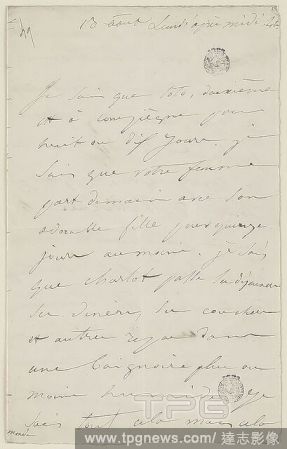 13 août Lundi après midi
Je sais que toto, deuxième
et à compiègne pour
huit ou dix jours, je
sais que votre femme
part demain avec son
adorable fille pour quinze
jours au moins. je sais
que charlot passe
les diners, les couchers
et autres repas dans
une baignoire plus ou
moins humide je
sais tout cela mais cela
TPG
www.tpgnews.com / 達志影像